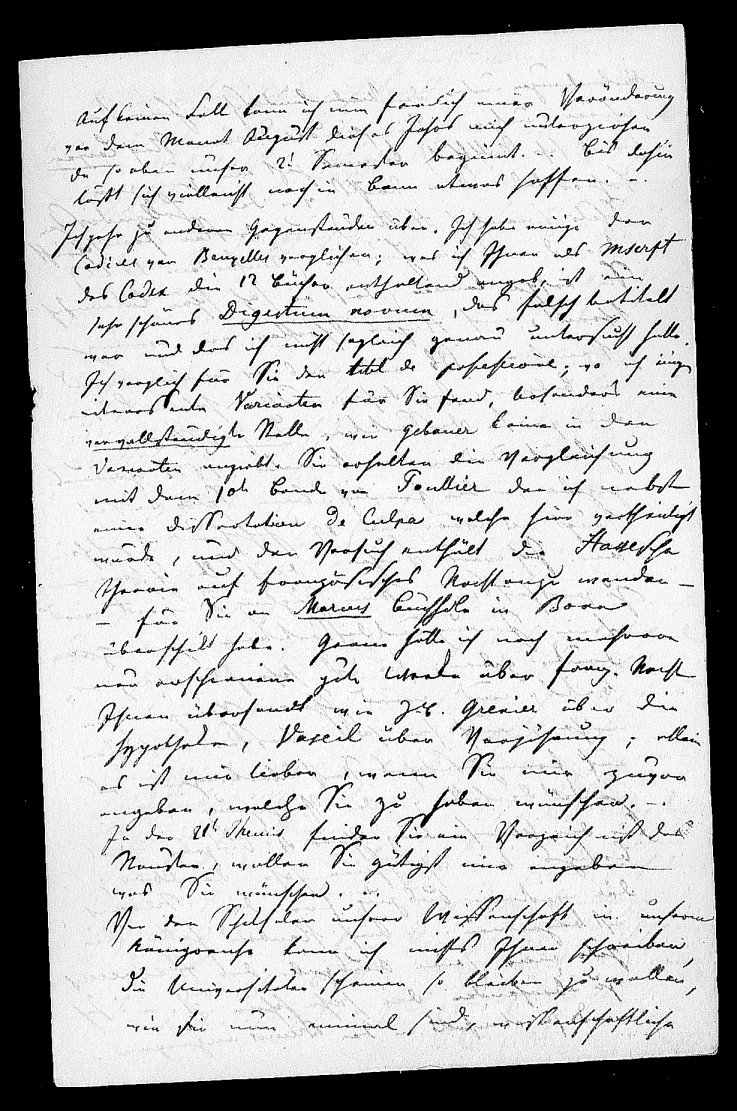 Auf keinen Fall kann ich nun freilich einer Veränderung
vor dem Monat August dieses Jahrs mich unterziehen
da so eben unser 2t Semester beginnt. – Bis dahin
läßt sich vielleicht noch in Bonn etwas hoffen. –
Ich gehe zu anderen Gegenständen über. Ich habe einige der
Codices von Bruxelles verglichen; was ich Ihnen als Mscrpt
des Codex die 12 Bücher enthaltend angab, ist ein
sehr schönes Digestum novum, das falsch betitelt
war und das ich nicht sogleich genau untersucht hatte.
Ich verglich für Sie den titel de possessione, wo ich einige
interessante Varianten für Sie fand, besonders eine
vervollständigte Stelle, wie Gebauer keine in den
Varianten angiebt. Sie erhalten die Vergleichung
mit dem 10t Bande von Toullier den ich nebst
einer dissertation de Culpa welche hier vertheidigt
wurde, und den Versuch enthält die Hassesche
Theorie auf französisches Recht anzuwenden –
– für Sie an Marcus Buchhdl. in Bonn
überschickt habe. Gerne hätte ich noch mehrere
neu erschienene gute Werke über franz. Recht
Ihnen übersandt wie z.B. Grenier über die
Hypotheken, Vazeil über Verjährung; allein
es ist mir lieber, wenn Sie mir zuvor
angeben, welche Sie zu haben wünschen. –
In der Themis finden Sie ein Verzeichniß des
Neusten, wollen Sie gütigst mir angeben
was Sie wünschen. –
Von den Schicksalen unserer Wissenschaft in unserm
Königreiche kann ich nichts Ihnen schreiben,
die Universitäten scheinen so bleiben zu wollen,
wie sie nun einmal sind, wissenschaftliche